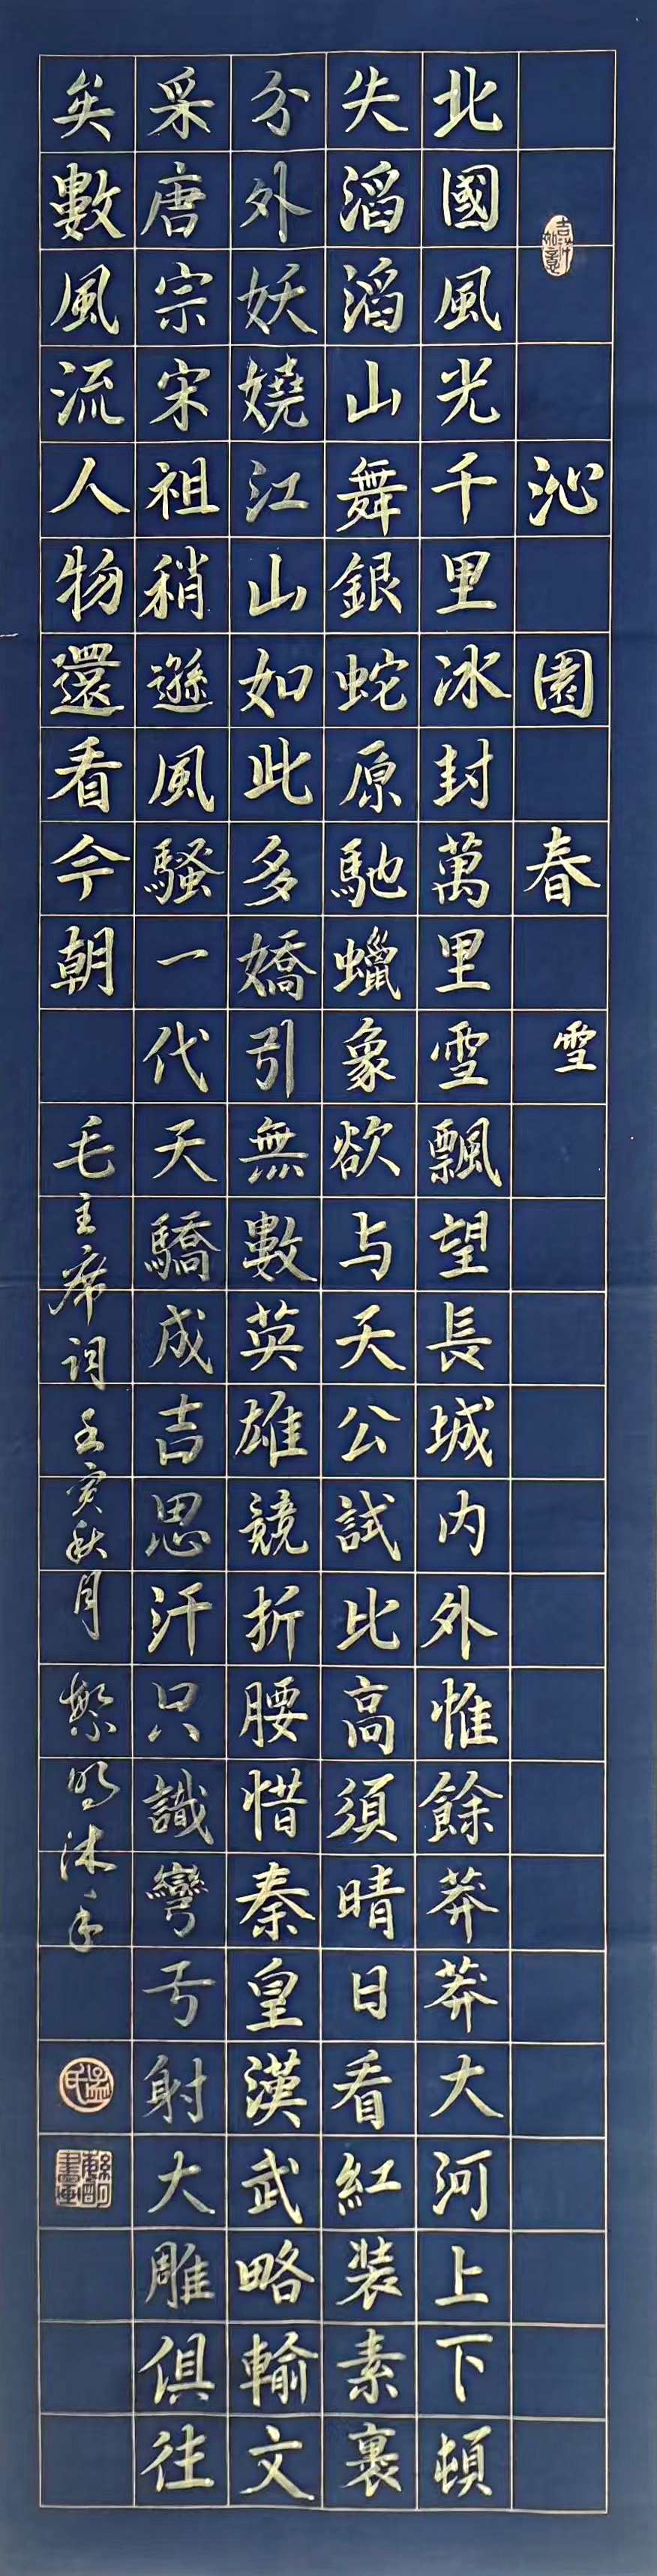 吉祥如意
沁園春雪
北國風光千里冰封萬里雪飄望長城内外惟餘莽莽大河上下頓
失滔滔山舞銀蛇原馳蠟象欲与天公試比高須晴日看紅装素裹
分外妖嬈江山如此多嬌引無數英雄競折腰惜秦皇漢武略輸文
采唐宗宋祖稍遜風騷一代天驕成吉思汗只識彎弓射大雕俱往
矣數風流人物還看今朝 毛主席詞 壬寅秋月 繁明沐手
孟氏